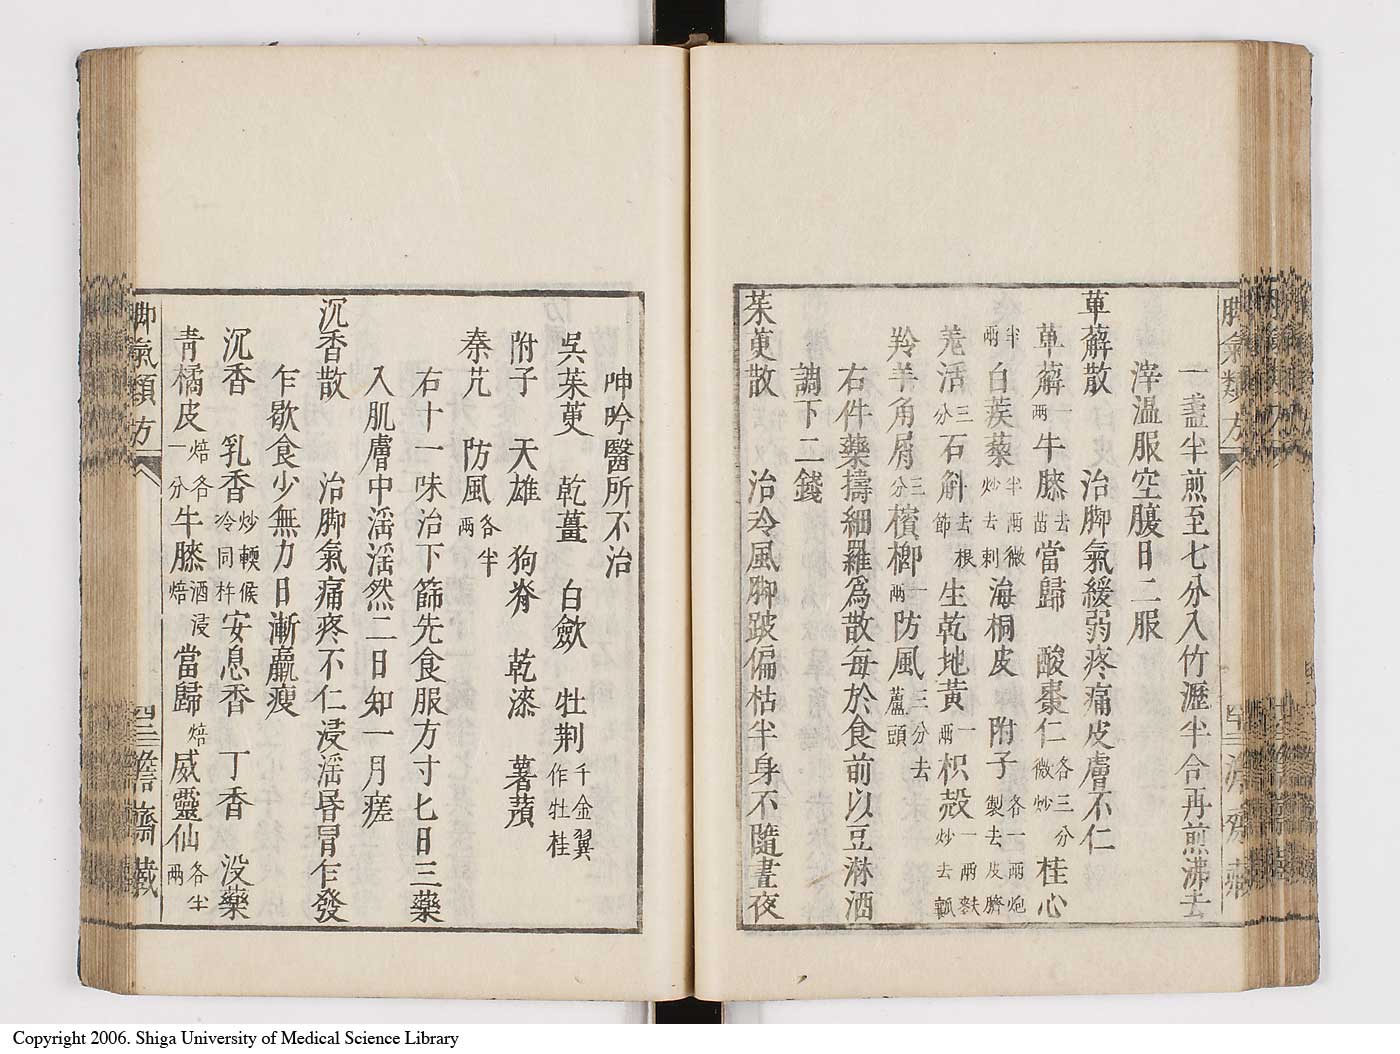 脚氣類方
一盞半煎至七分入竹瀝半合再煎沸去
滓溫服空腹日二服
萆薢散 治脚氣緩弱疼痛皮膚不仁
萆薢一兩 牛膝去苗 當歸 酸棗仁各三分微炒 桂心
半兩 白蒺藜半兩微炒去刺 海桐皮 附子各一兩炮製去皮臍
羌活三分 石斛去根節 生乾地黃一兩 枳殻一兩麩炒去瓤
羚羊角屑三分 檳榔一兩 防風三分去蘆頭
右件藥擣細羅爲散每於食前以豆淋酒
調下二錢
茱萸散 治冷風脚跛偏枯半身不隨晝夜
呻吟醫所不治
吳茱萸 乾薑 白歛 牡荆千金翼作牡桂
附子 天雄 狗脊 乾漆 薯蕷
秦艽 防風各半兩
右十一味治下篩先食服方寸匕日三藥
入肌膚中淫淫然二日知一月瘥
沉香散 治脚氣痛疼不仁浸淫昏冒乍發
乍歇食少無力日漸羸瘦
沉香 乳香炒輭候冷同杵 安息香 丁香 没藥
靑橘皮焙各一分 牛膝酒浸焙 當歸焙 威靈仙各半兩
脚氣類方 四三 澹齋藏